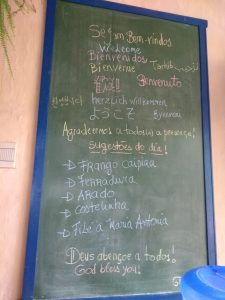 Sejam Bem-vindos
Welcome
Bienvenidos
Bienvenue
Benvenuto
herzlich willkommen
ようこそ
Agradecemos a todos(a) a presença!
Sugestões do dia!
→ Frango Caipira
→ Ferradura
→ Arado
→ Costelinha
→ Filé a Maria Antonia
Deus abençoe a todos!
God bless you!